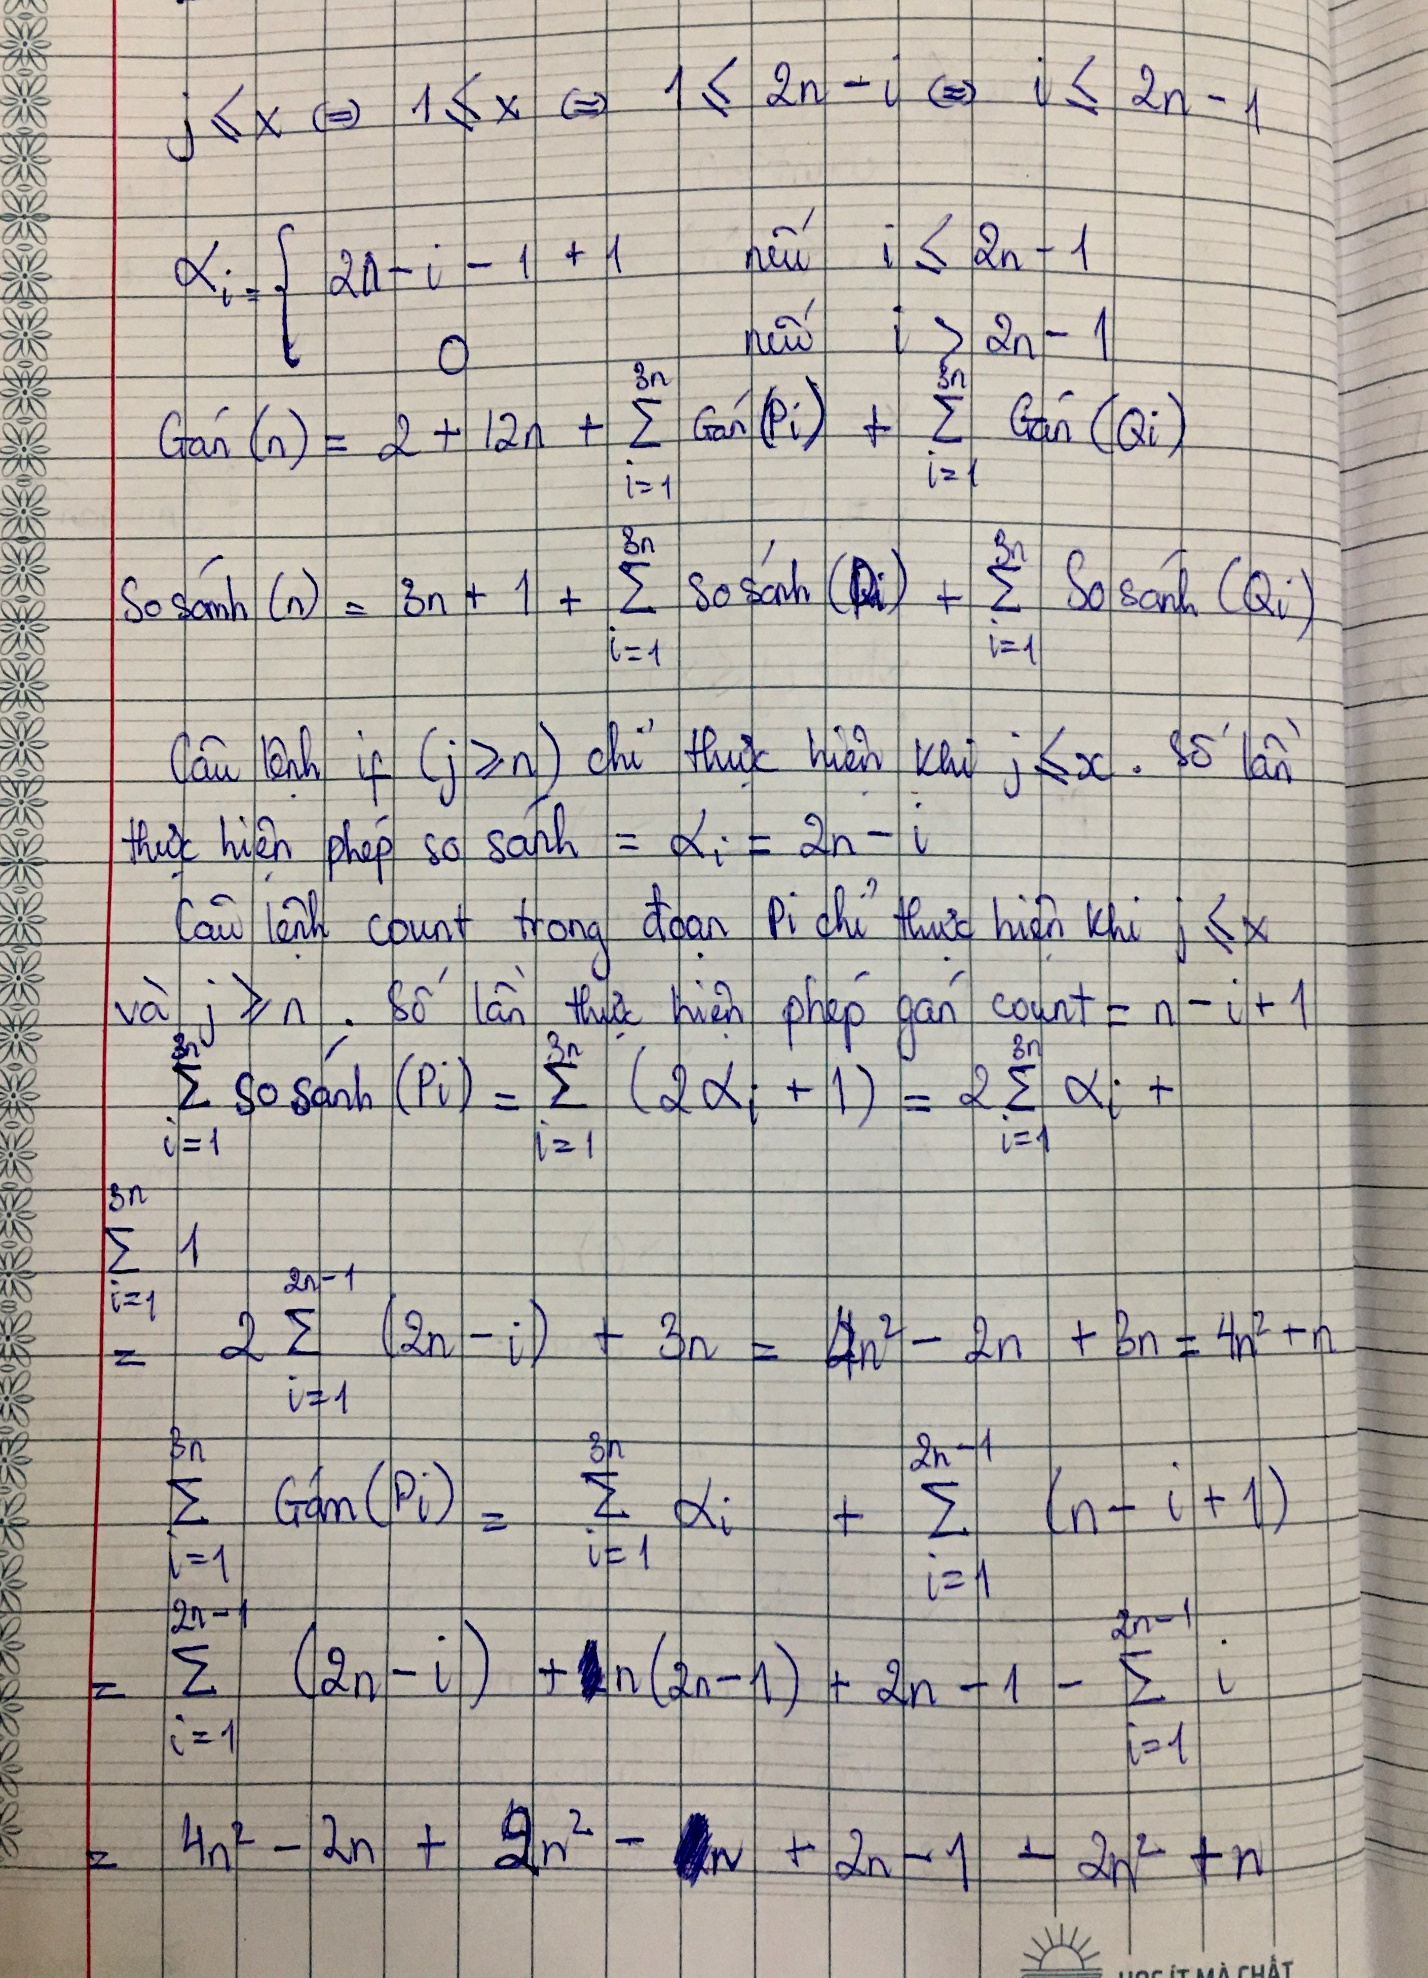 j ⩽ x ⇔ 1 ⩽ x ⇔ 1 ⩽ 2n - i ⇔ i ⩽ 2n - 1
αi = { 2n - i - 1 + 1 nếu i ⩽ 2n - 1
0 nếu i > 2n - 1
Gán (n) = 2 + 12n + ∑_{i=1}^{3n} Gán (Pi) + ∑_{i=1}^{3n} Gán (Qi)
So sánh (n) = 3n + 1 + ∑_{i=1}^{3n} So sánh (Pi) + ∑_{i=1}^{3n} So sánh (Qi)
Câu lệnh if (j ⩾ n) chỉ thực hiện khi j ⩽ x. Số lần
thực hiện phép so sánh = αi = 2n - i
Câu lệnh count trong đoạn Pi chỉ thực hiện khi j ⩽ x
và j ⩾ n. Số lần thực hiện phép gán count = n - i + 1
∑_{i=1}^{3n} So sánh (Pi) = ∑_{i=1}^{3n} (2αi + 1) = 2∑_{i=1}^{3n} αi +
∑_{i=1}^{3n} 1
= 2 ∑_{i=1}^{2n-1} (2n - i) + 3n = 4n² - 2n + 3n = 4n² + n
∑_{i=1}^{3n} Gán (Pi) = ∑_{i=1}^{3n} αi + ∑_{i=1}^{2n-1} (n - i + 1)
= ∑_{i=1}^{2n-1} (2n - i) + n(2n - 1) + 2n - 1 - ∑_{i=1}^{2n-1} i
= 4n² - 2n + 2n² - n + 2n - 1 - 2n² + n
HỌC ÍT MÀ CHẤT